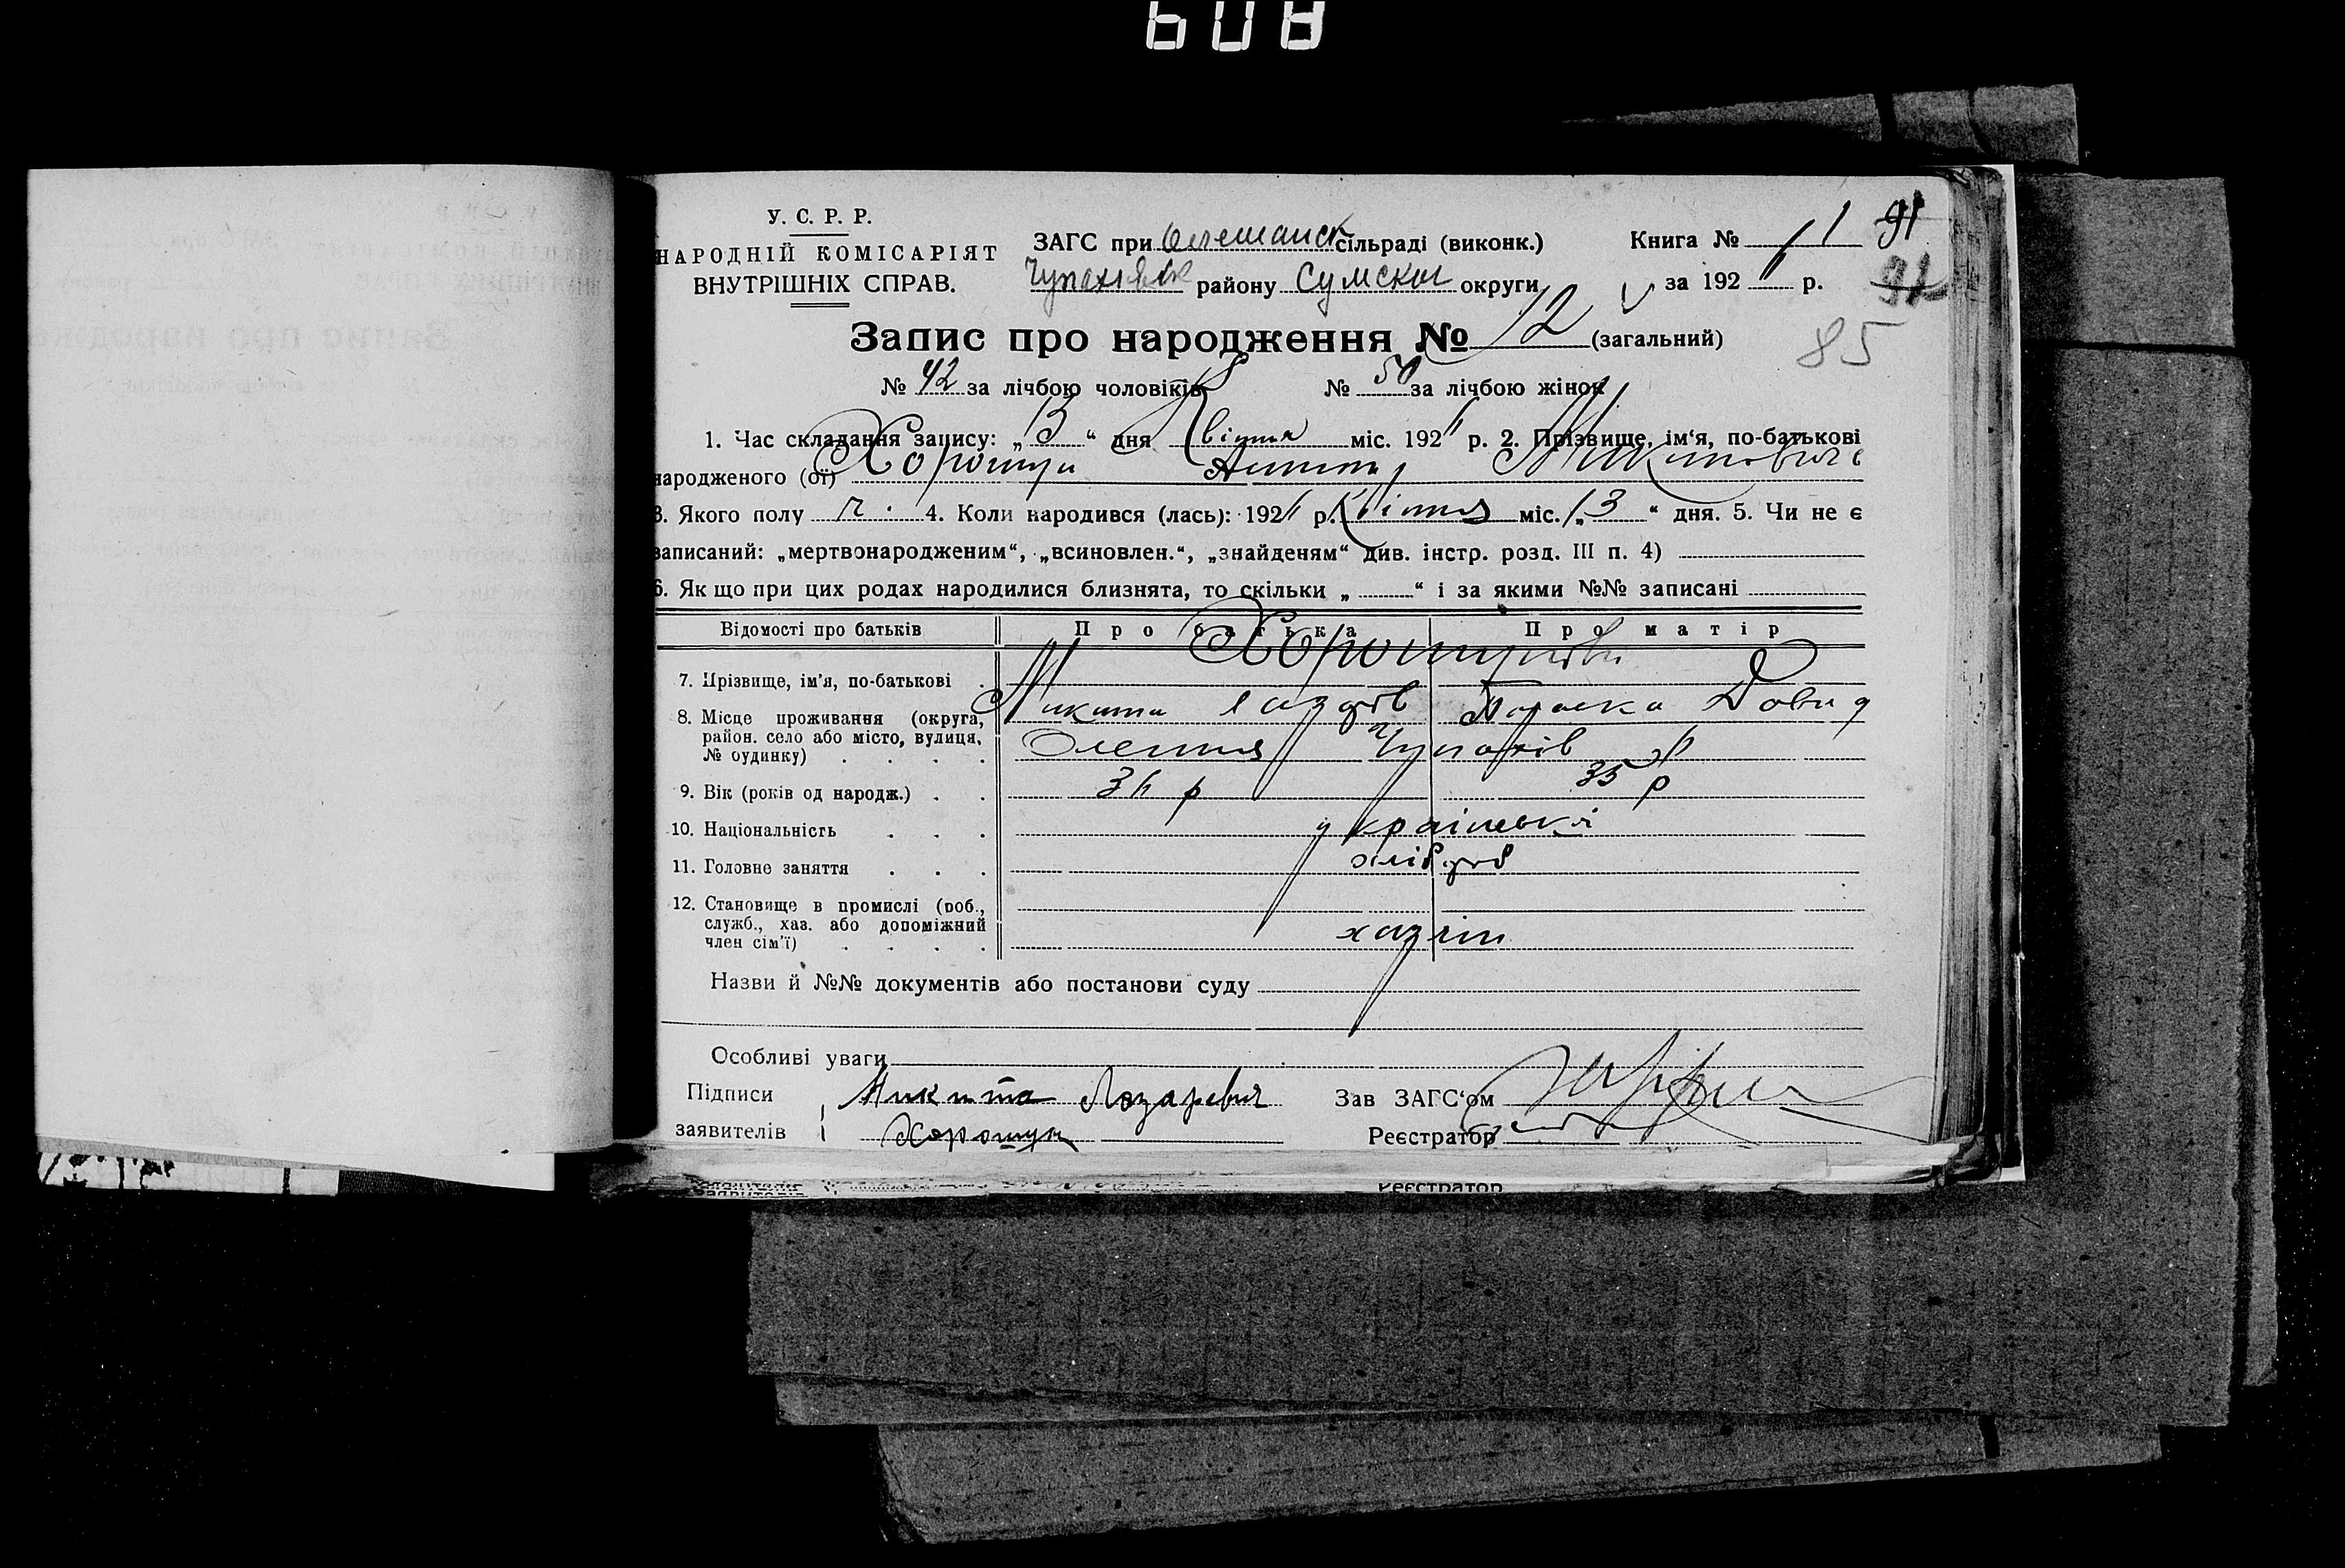 608
У. С. Р. Р.
НАРОДНІЙ КОМІСАРІЯТ
ВНУТРІШНІХ СПРАВ.
ЗАГС при Олешанск сільраді (виконк.)
Чупахівськ району Сумскої округи
Книга № 1
за 192 р.
91
91
85
Запис про народження № 12 (загальний)
№ 42 за лічбою чоловіків № 50 за лічбою жінок
1. Час складання запису: „ 13 “ дня Квітня міс. 192 р. 2. Прізвище, ім‘я, по-батькові
народженого (ої) Хорошун Микитович
3. Якого полу ч. 4. Коли народився (лась): 192 р. Квітня міс. „ 13 “ дня. 5. Чи не є
записаний: „мертвонародженим“, „всиновлен.“, „знайденям“ див. інстр. розд. III п. 4)
6. Як що при цих родах народилися близнята, то скільки „ “ і за якими №№ записані
Відомості про батьків Про батька Про матір
7. Прізвище, ім’я, по-батькові . Хорошунови
Микита Лазарів Параска Давид
8. Місце проживання (округа, район. село або місто, вулиця, № будинку) . . . . Олешня Чупахів р
9. Вік (років од народж.) . . 36 р 35 р
10. Національність . . . українські
11. Головне заняття . . . хлібороб
12. Становище в промислі (роб., служб., хаз. або допоміжний член сім’ї) . . . . хазяїн
Назви й №№ документів або постанови суду
Особливі уваги
Підписи Микита Лазаревич Зав ЗАГС‘ом
заявителів Хорошун Реєстратор
заявителів Реєстратор